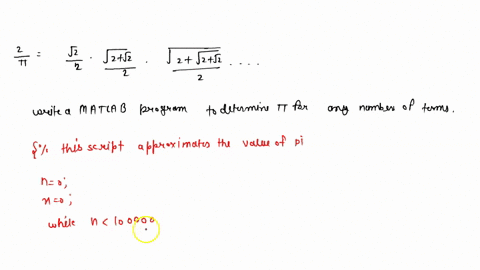 2/π = √2/2 · √(2+√2)/2 · √(2+√(2+√2))/2 ....
write a MATLAB program to determine π for any number of terms.
% this script approximates the value of pi
n=0;
x=0;
while n < 100000